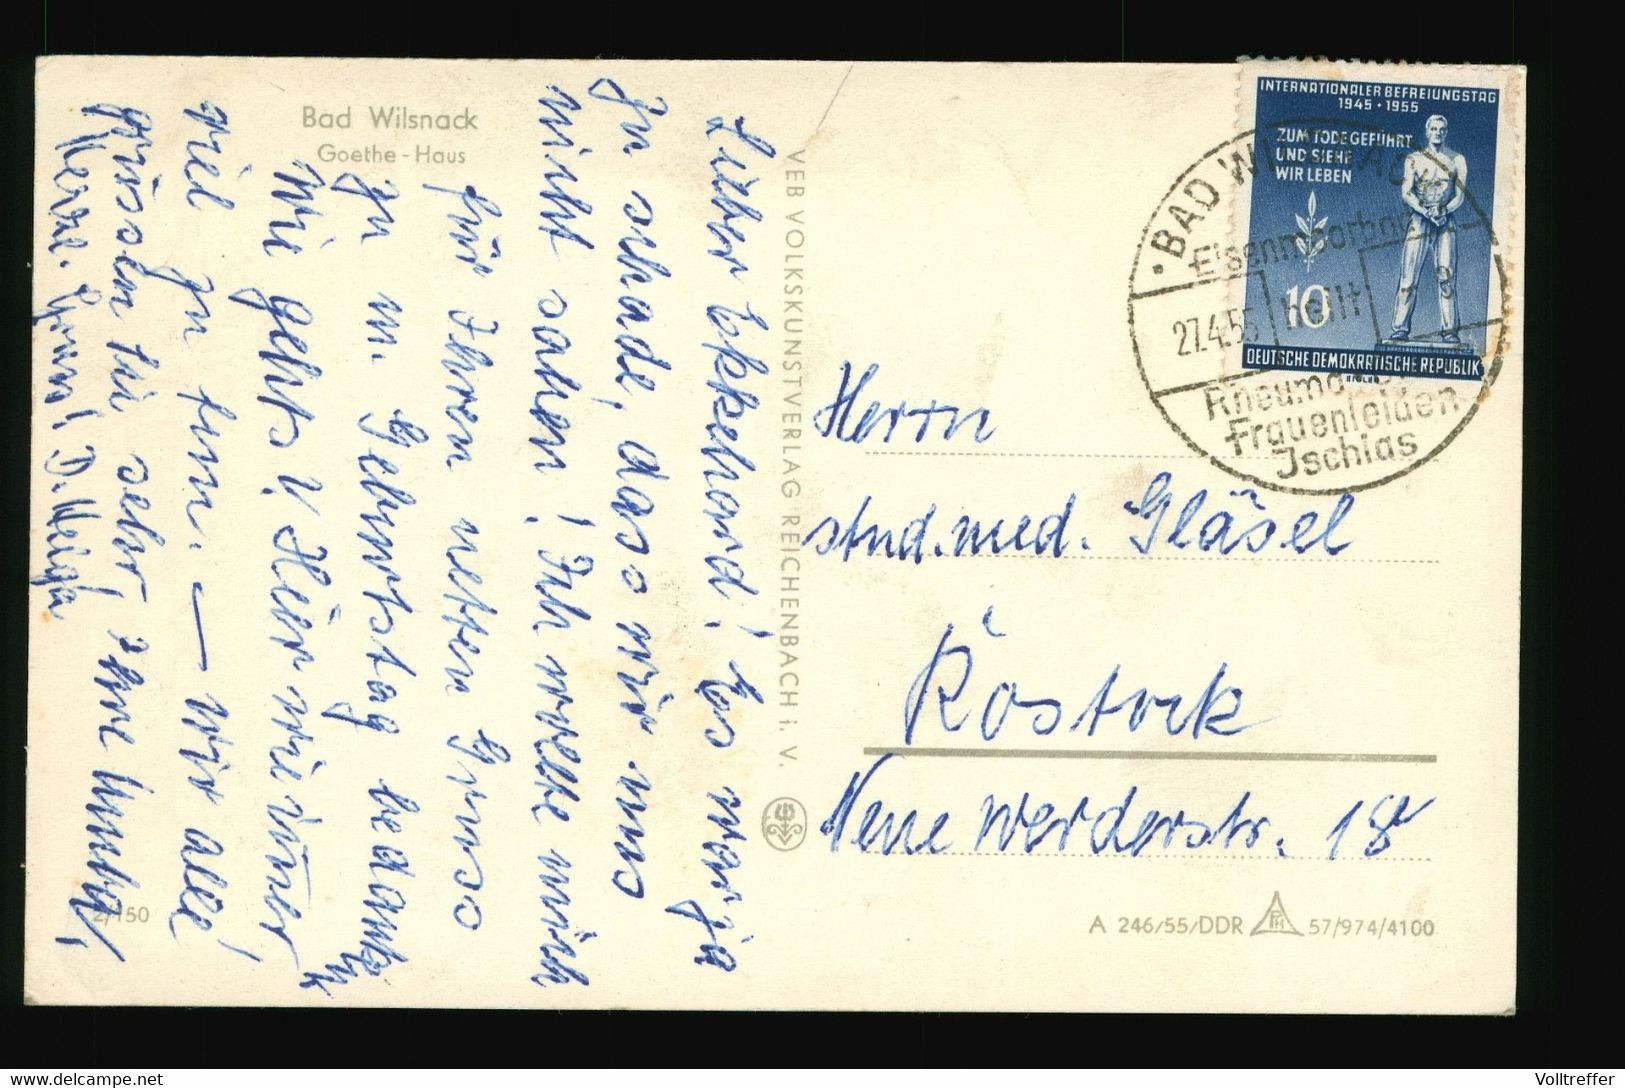 Bad Wilsnack
Goethe-Haus
Lieber Ekkehard! Es war ja
zu schade, dass wir uns
nicht sahen! Ich wollte mich
für Ihren netten Gruss
zu m. Geburtstag bedanken
Wie gehts? Hier wie immer
viel zu tun. — wir alle
grüssen Sie sehr, Ihre
Herzl. Gruss! D.
2/150
VEB VOLKSKUNSTVERLAG REICHENBACH i. V.
INTERNATIONALER BEFREIUNGSTAG
1945 · 1955
ZUM TODE GEFÜHRT
UND SIEHE
WIR LEBEN
10
DEUTSCHE DEMOKRATISCHE REPUBLIK
· BAD WILSNACK
Eisenmoorbad
27.4.55
heilt
Rheuma
Frauenleiden
Jschias
Herrn
stud. med. Gläsel
Rostock
Neue Werderstr. 18
A 246/55/DDR
57/974/4100
Volltreffer
www.delcampe.net